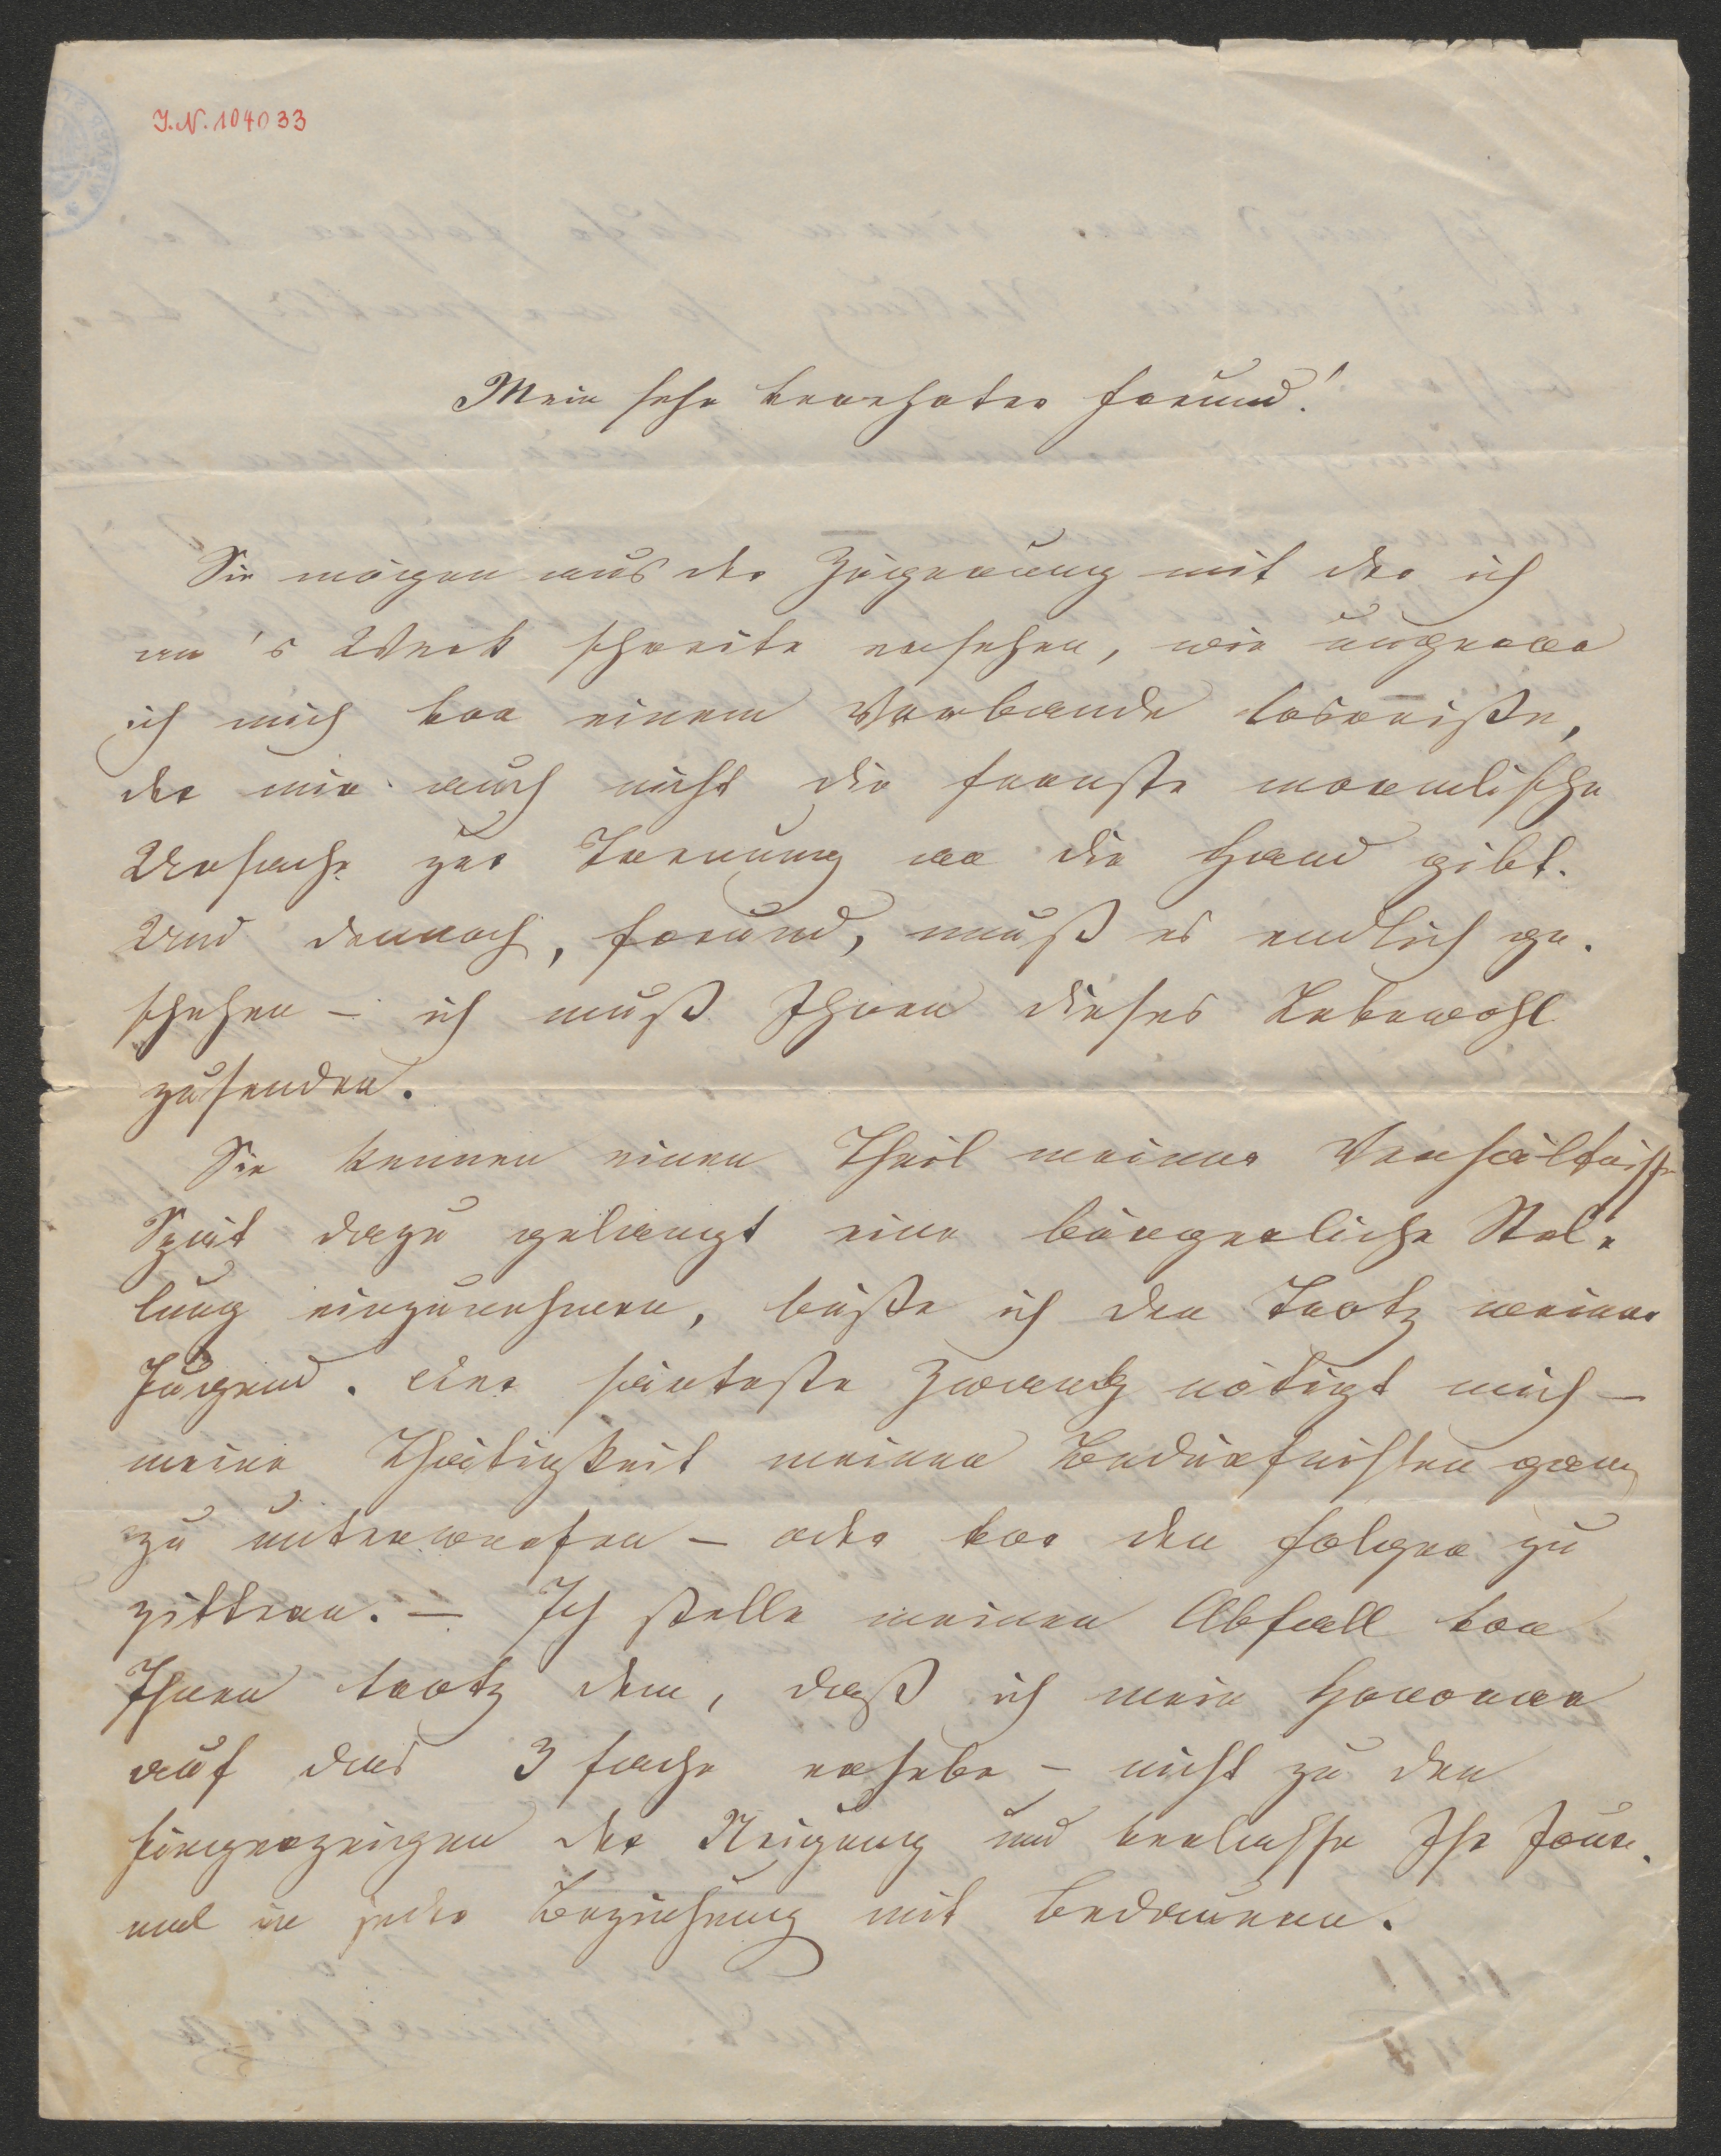 J.N. 104033
Mein sehr verehrter Freund!
Sie mögen aus der Zögerung mit der ich
an's Werk schreite ersehen, wie ungerne
ich mich von einem Verbande losreiße,
der mir auch nicht die fernste moralische
Ursache zur Trennung an die Hand gibt.
Und dennoch, Freund, muß es endlich ge-
schehen – ich muß Ihnen dieses Lebewohl
zusenden.
Sie kennen einen Theil meiner Verhältnisse
Spät dazu gelangt eine bürgerliche Stel-
lung einzunehmen, büße ich den Trotz meiner
Jugend. Der härteste Zwang nötigt mich –
meine Thätigkeit meinen Bedürfnissen ganz
zu unterwerfen – oder vor den Folgen zu
zittern. – Ich stelle meinen Abfall von
Ihnen trotz dem, daß ich mein Honorar
auf das 3 fache erhebe – nicht zu den
Fingerzeigen der Neigung und verlasse Ihr Jour-
nal in jeder Beziehung mit Bedauern.